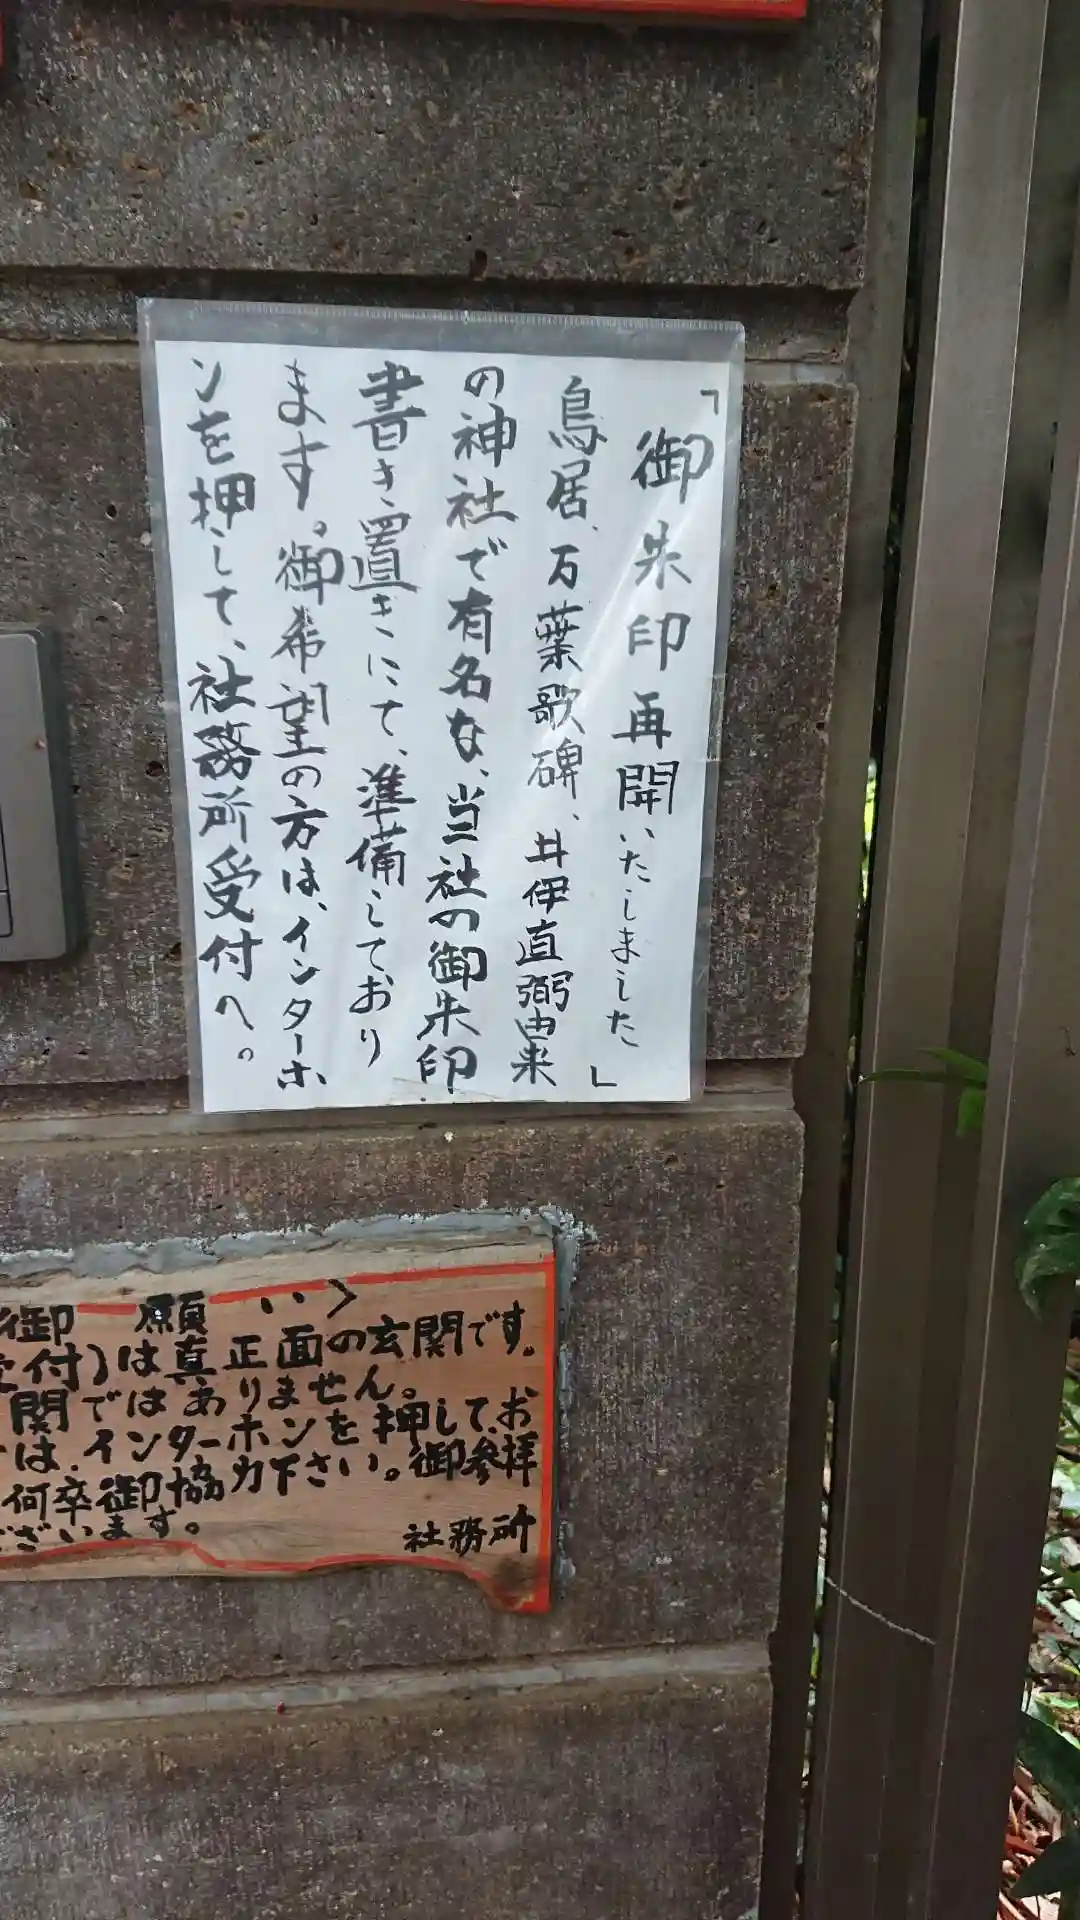 「御朱印再開いたしました」
鳥居、万葉歌碑、井伊直弼由来
の神社で有名な、当社の御朱印
書き置きにて、準備しており
ます。御希望の方は、インターホ
ンを押して、社務所受付へ。
御願い>
受付)は真正面の玄関です。
関ではありません。
は、インターホンを押して、お
何卒御協力下さい。御参拝
ございます。
社務所